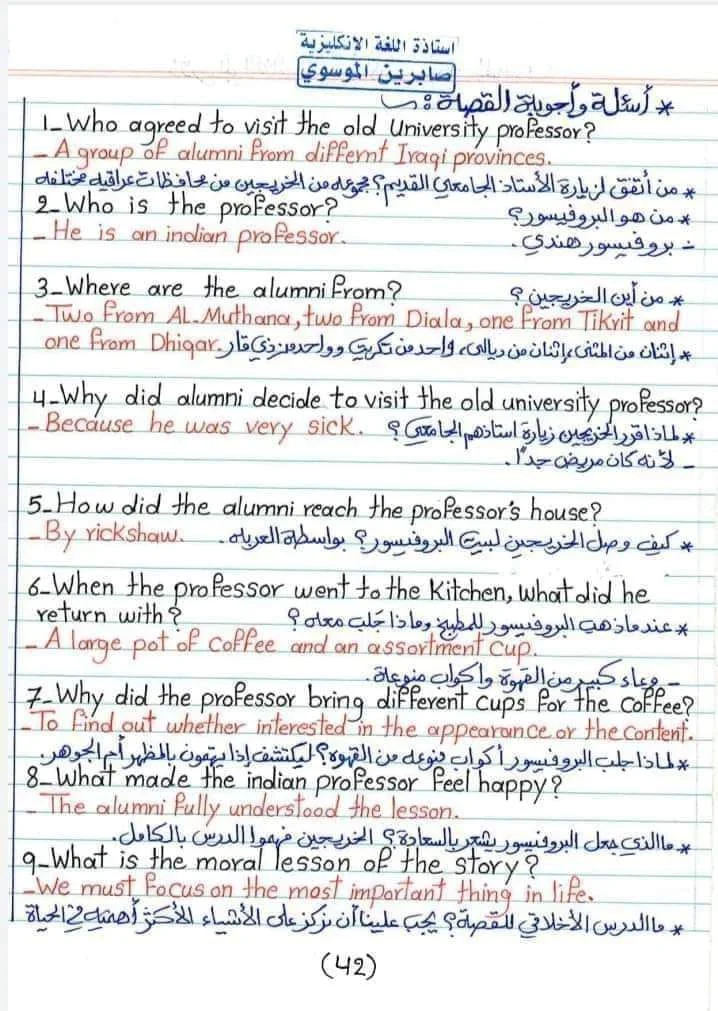 استاذة اللغة الانكليزية
صابرين الموسوي
* أسئلة وأجوبة القصة :ـ
1_Who agreed to visit the old University professor?
_ A group of alumni from differnt Iraqi provinces.
* من أتفق لزيارة الأستاذ الجامعي القديم؟ مجموعه من الخريجين من محافظات عراقيه مختلفه
2_Who is the professor?
* من هو البروفيسور؟
_ He is an indian professor.
ـ بروفيسور هندي.
3_Where are the alumni from?
* من أين الخريجين؟
_ Two from AL-Muthana, two from Diala, one from Tikrit and
one from Dhiqar.
* إثنان من المثنى، إثنان من ديالى، واحد من تكريت وواحد من ذي قار
4_Why did alumni decide to visit the old university professor?
_ Because he was very sick.
* لماذا قرر الخريجين زيارة استاذهم الجامعي؟
ـ لأنه كان مريض جداً.
5_How did the alumni reach the professor's house?
_ By rickshaw.
* كيف وصل الخريجين لبيت البروفيسور؟ بواسطة العربه.
6_When the professor went to the Kitchen, what did he
return with?
* عندما ذهب البروفيسور للمطبخ وماذا جلب معاه؟
_ A large pot of coffee and an assortment cup.
ـ وعاء كبير من القهوة واكواب منوعة.
7_Why did the professor bring different cups for the coffee?
_To find out whether interested in the appearance or the content.
* لماذا جلب البروفيسور أكواب منوعه من القهوه؟ ليكتشف إذا يهتمون بالمظهر أم الجوهر.
8_What made the indian professor feel happy?
_ The alumni fully understood the lesson.
* ماالذي جعل البروفيسور يشعر بالسعادة؟ الخريجين فهموا الدرس بالكامل.
9_What is the moral lesson of the story?
_We must focus on the most important thing in life.
* ماالدرس الأخلاقي للقصة؟ يجب علينا أن نركز على الأشياء الأكثر أهميه في الحياة
(42)